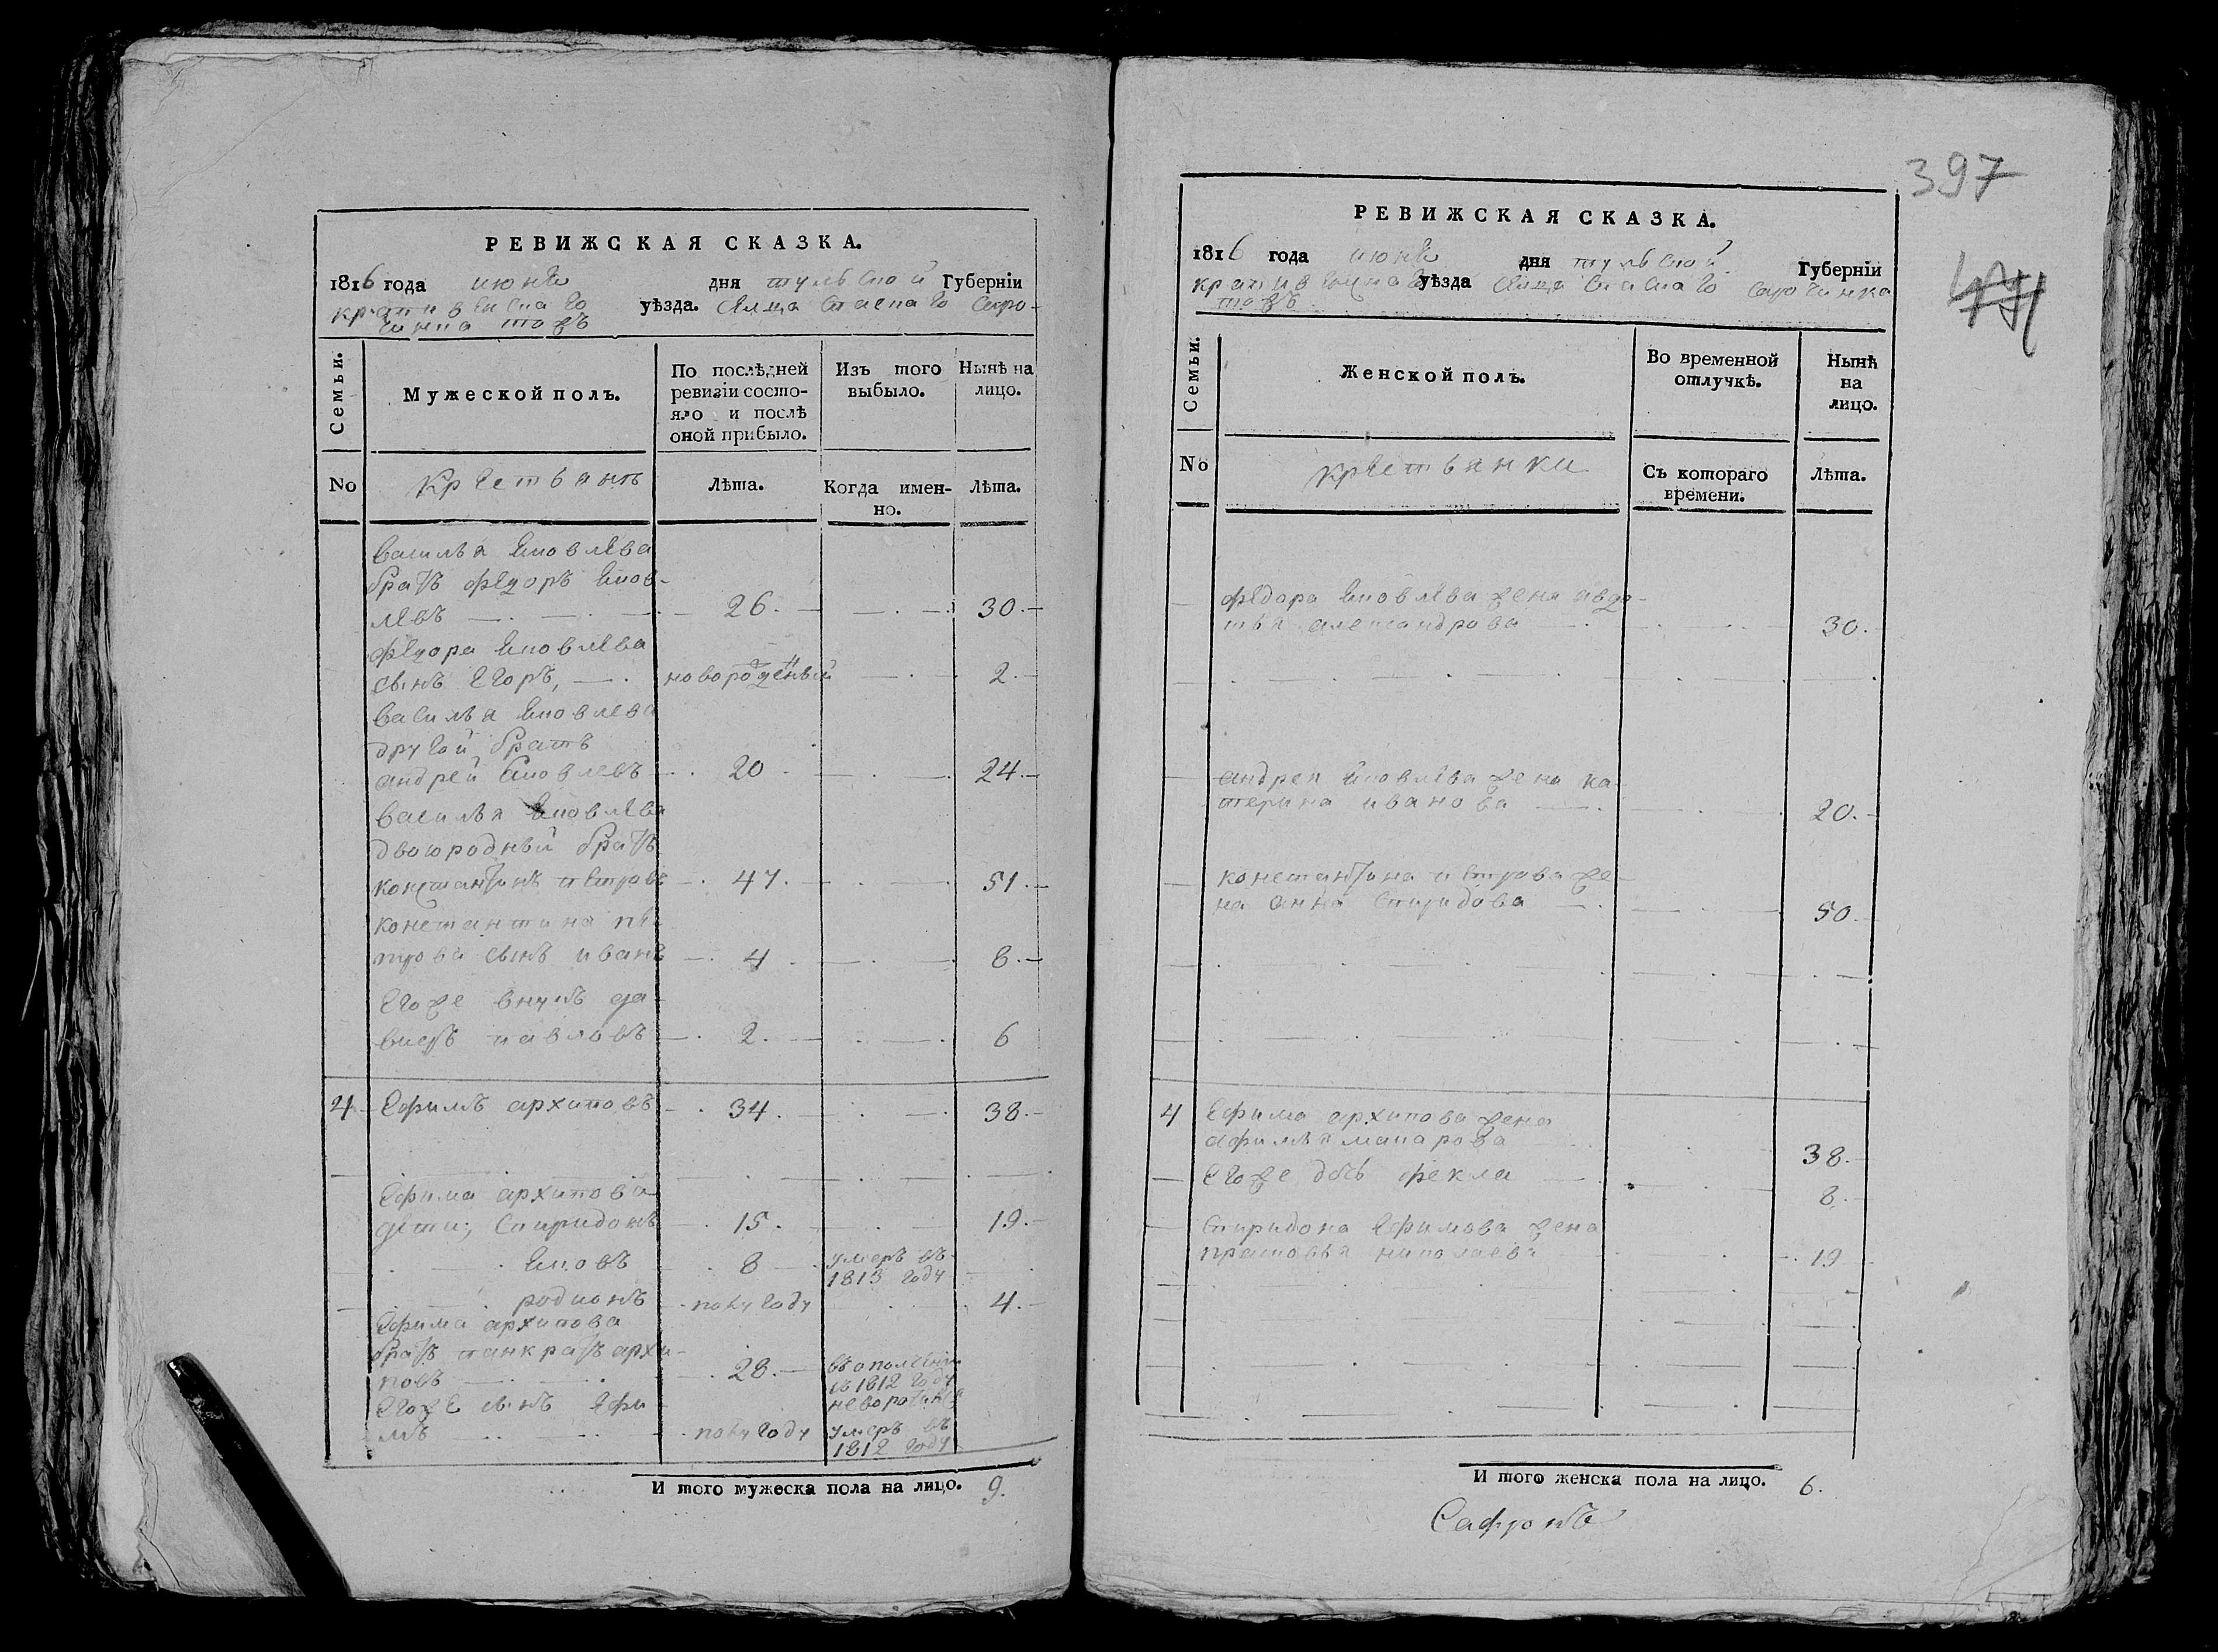 РЕВИЖСКАЯ СКАЗКА.
1816 года июня дня тульской Губерніи
крапивенскаго уѣзда. Селца Спаскаго Соро-
чинка тожъ
Семьи.
Мужеской полъ.
По послѣдней
ревизіи состо-
яло и послѣ
оной прибыло.
Изъ того
выбыло.
Нынѣ на
лицо.
No
крестьянъ
Лѣта.
Когда имен-
но.
Лѣта.
василья яковлева
братъ федоръ яков-
левъ 26. 30.
федора яковлева
сынъ егоръ, новорожденный 2.
василья яковлева
другой братъ
андрей яковлевъ 20 24.
василья яковлева
двоюродный братъ
константинъ петровъ 47. 51.
константина пе
трова сынъ иванъ 4 8.
егоже внукъ да
выдъ павловъ 2. 6
4 ефимъ архиповъ 34. 38.
ефима архипова
дети; спиридонъ 15. 19.
яковъ 8 умеръ въ
1813 году
родионъ полугоду 4.
ефима архипова
братъ панкратъ архи-
повъ 28. въ ополчении
въ 1812 году
егоже сынъ ефи
мъ полугоду умеръ въ
1812 году
И того мужеска пола на лицо. 9.
397
РЕВИЖСКАЯ СКАЗКА.
1816 года июня дня тульской Губерніи
крапивенскаго уѣзда Селца Спаскаго Сорочинка
тожъ
Семьи.
Женской полъ.
Во временной
отлучкѣ.
Нынѣ
на
лицо.
No
крестьянки
Съ котораго
времени.
Лѣта.
федора яковлева жена авдо-
тья александрова 30.
андрея яковлева жена ка
терина иванова 20.
константина петрова же
на анна спиридова 50.
4 ефима архипова жена
афимья макарова 38.
егоже дочь фекла 8.
спиридона ефимова жена
прасковья николаева 19
И того женска пола на лицо. 6.
Сафронъ